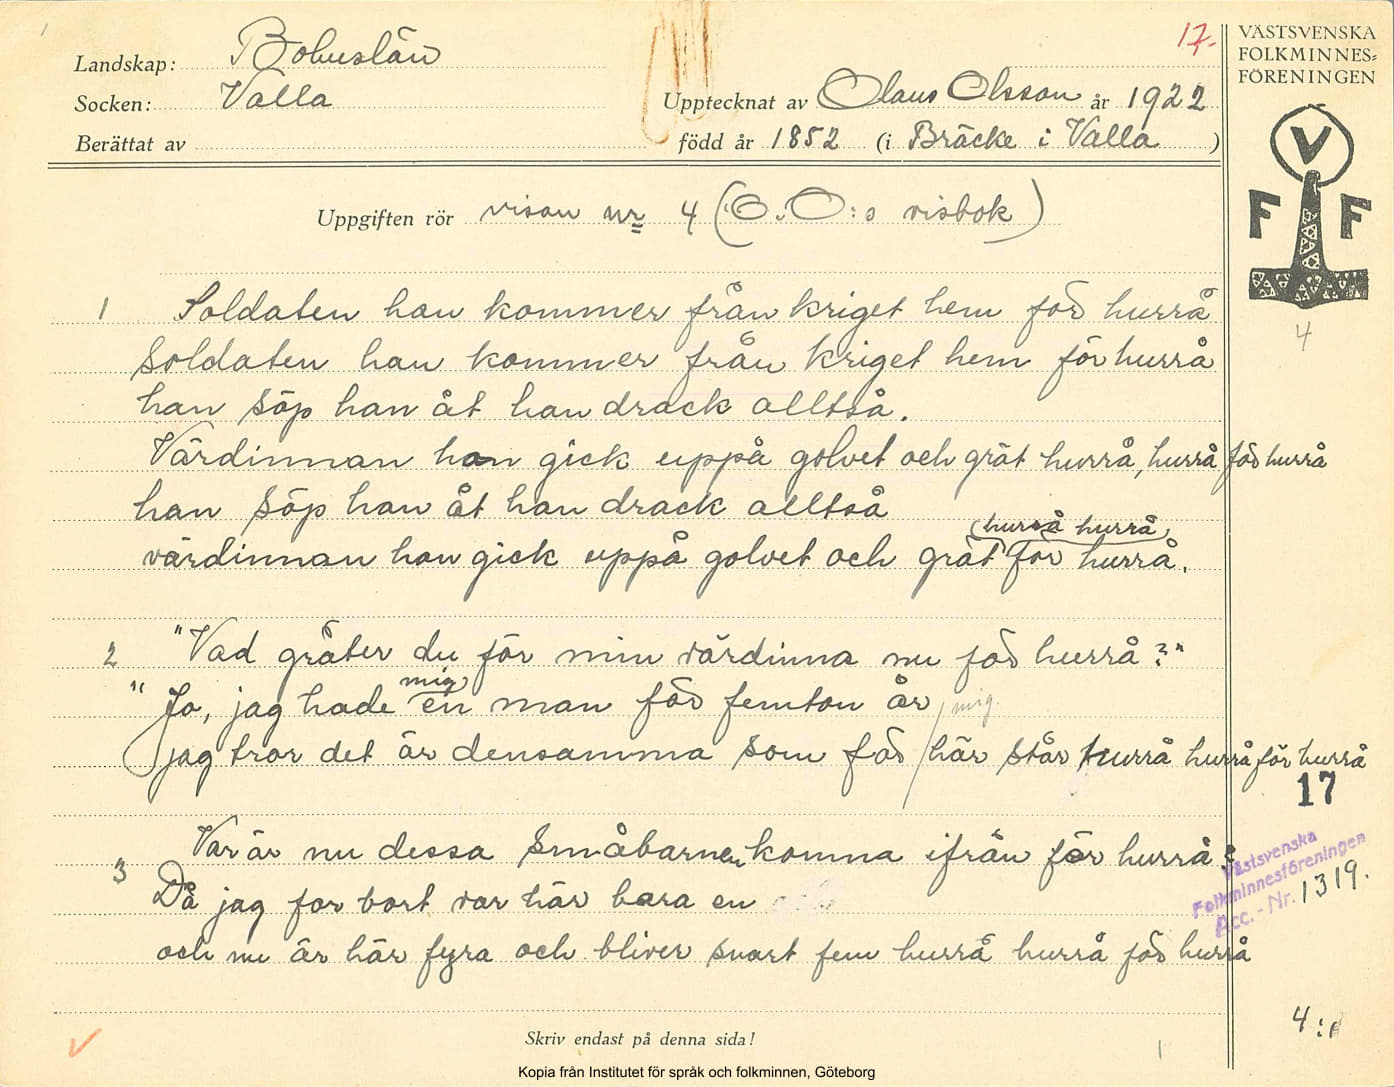 17.
VÄSTSVENSKA
FOLKMINNES=
FÖRENINGEN
V
F F
Landskap: Bohuslän
Socken: Valla
Upptecknat av Olaus Olsson år 1922
Berättat av
född år 1852 (i Bräcke i Valla )
Uppgiften rör visan nr 4 (O.O:s visbok)
4
1 Soldaten han kommer från kriget hem för hurrå
Soldaten han kommer från kriget hem för hurrå
han söp han åt han drack alltså.
Värdinnan hon gick uppå golvet och grät hurrå, hurrå för hurrå
han söp han åt han drack alltså
(hurrå hurrå)
värdinnan hon gick uppå golvet och grät för hurrå.
2 "Vad gråter du för min värdinna nu för hurrå?"
mig
"Jo, jag hade en man för femton år mig
jag tror det är densamma som för här står hurrå hurrå för hurrå
17
3 Var är nu dessa småbarnen komna ifrån för hurrå?
Då jag for bort var här bara en
och nu är här fyra och bliver snart fem hurrå hurrå för hurrå
Västsvenska
Folkminnesföreningen
Acc.-Nr. 1319.
4:
Skriv endast på denna sida!
1
Kopia från Institutet för språk och folkminnen, Göteborg